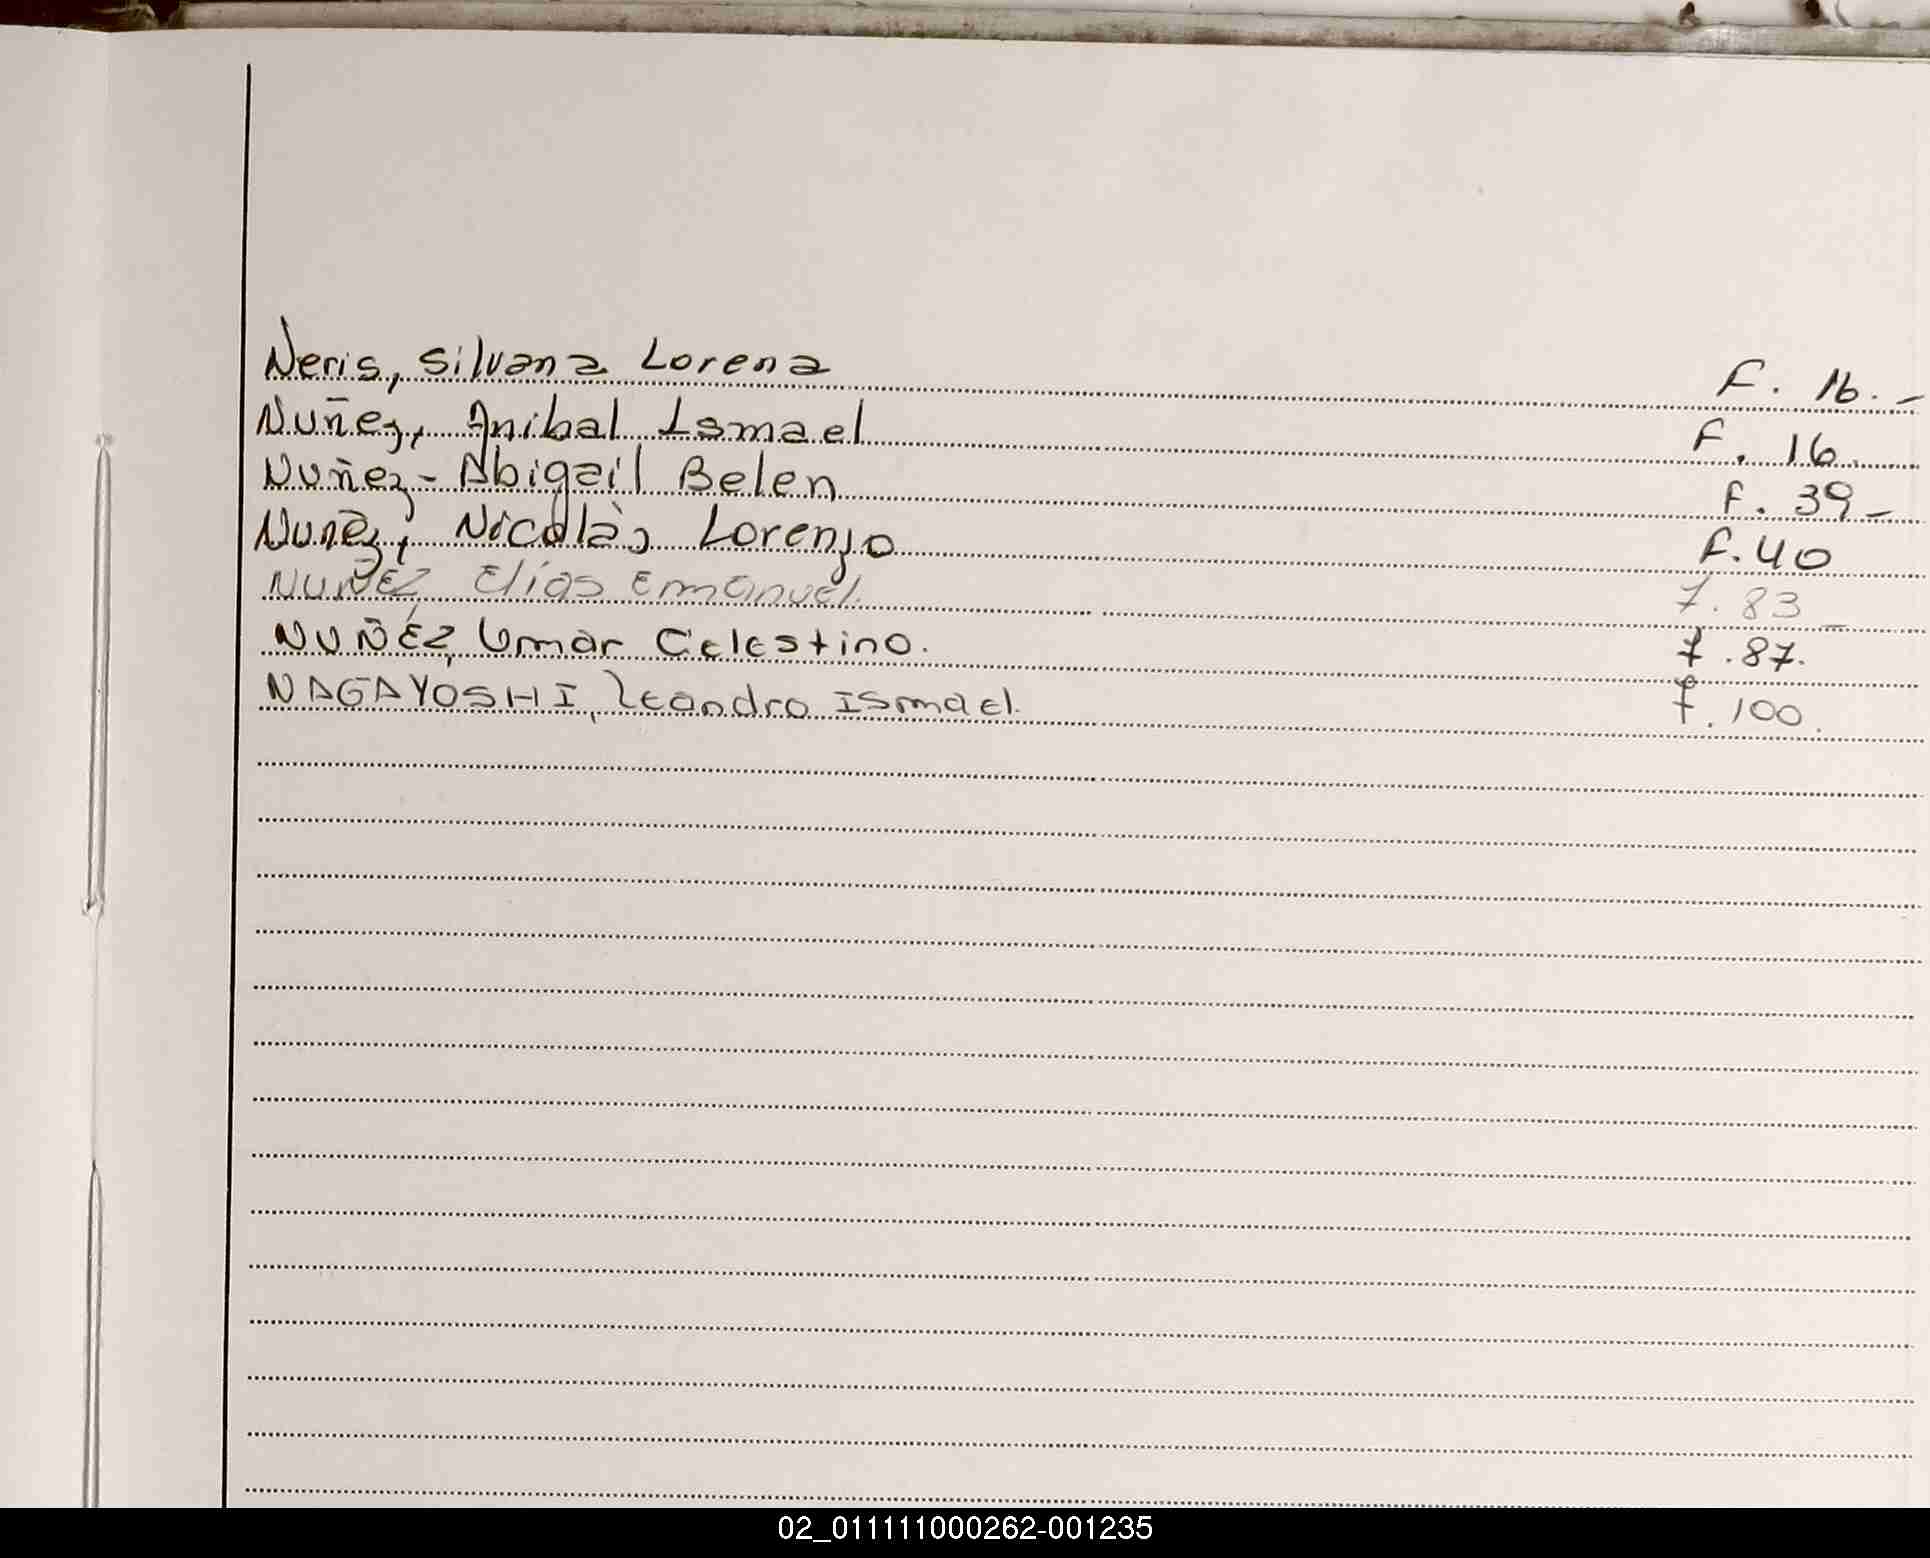 Neris, Silvana Lorena F. 16.-
Nuñez, Anibal Ismael F. 16.
Nuñez - Abigail Belen F. 39-
Nuñez, Nicolás Lorenzo F. 40
NUÑEZ, Elías Emanuel. f. 83
NUÑEZ, Omar Celestino. f. 87.
NAGAYOSHI, Leandro Ismael. f. 100.
02_011111000262-001235